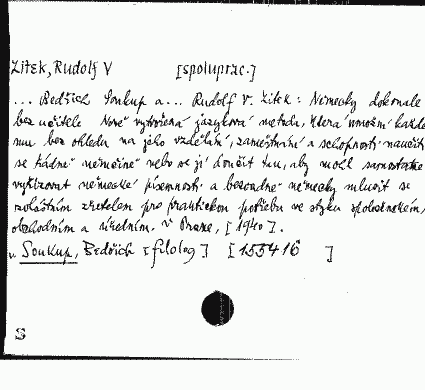 Zítek, Rudolf V [spoluprac.]
... Bedřich Soukup a... Rudolf V. Zítek: Německy dokonale
bez učitele. Nově vytvořená jazyková metoda, která umožní každé-
mu bez ohledu na jeho vzdělání, zaměstnání a schopnosti naučit
se řádně němčině nebo se jí doučit tak, aby mohl samostatně
vyřizovat německé písemnosti a bezvadně německy mluvit se
zvláštním zřetelem pro praktickou potřebu ve styku společenském,
obchodním a úředním. V Praze, [1940].
v. Soukup, Bedřich [filolog] [155416 ]
S